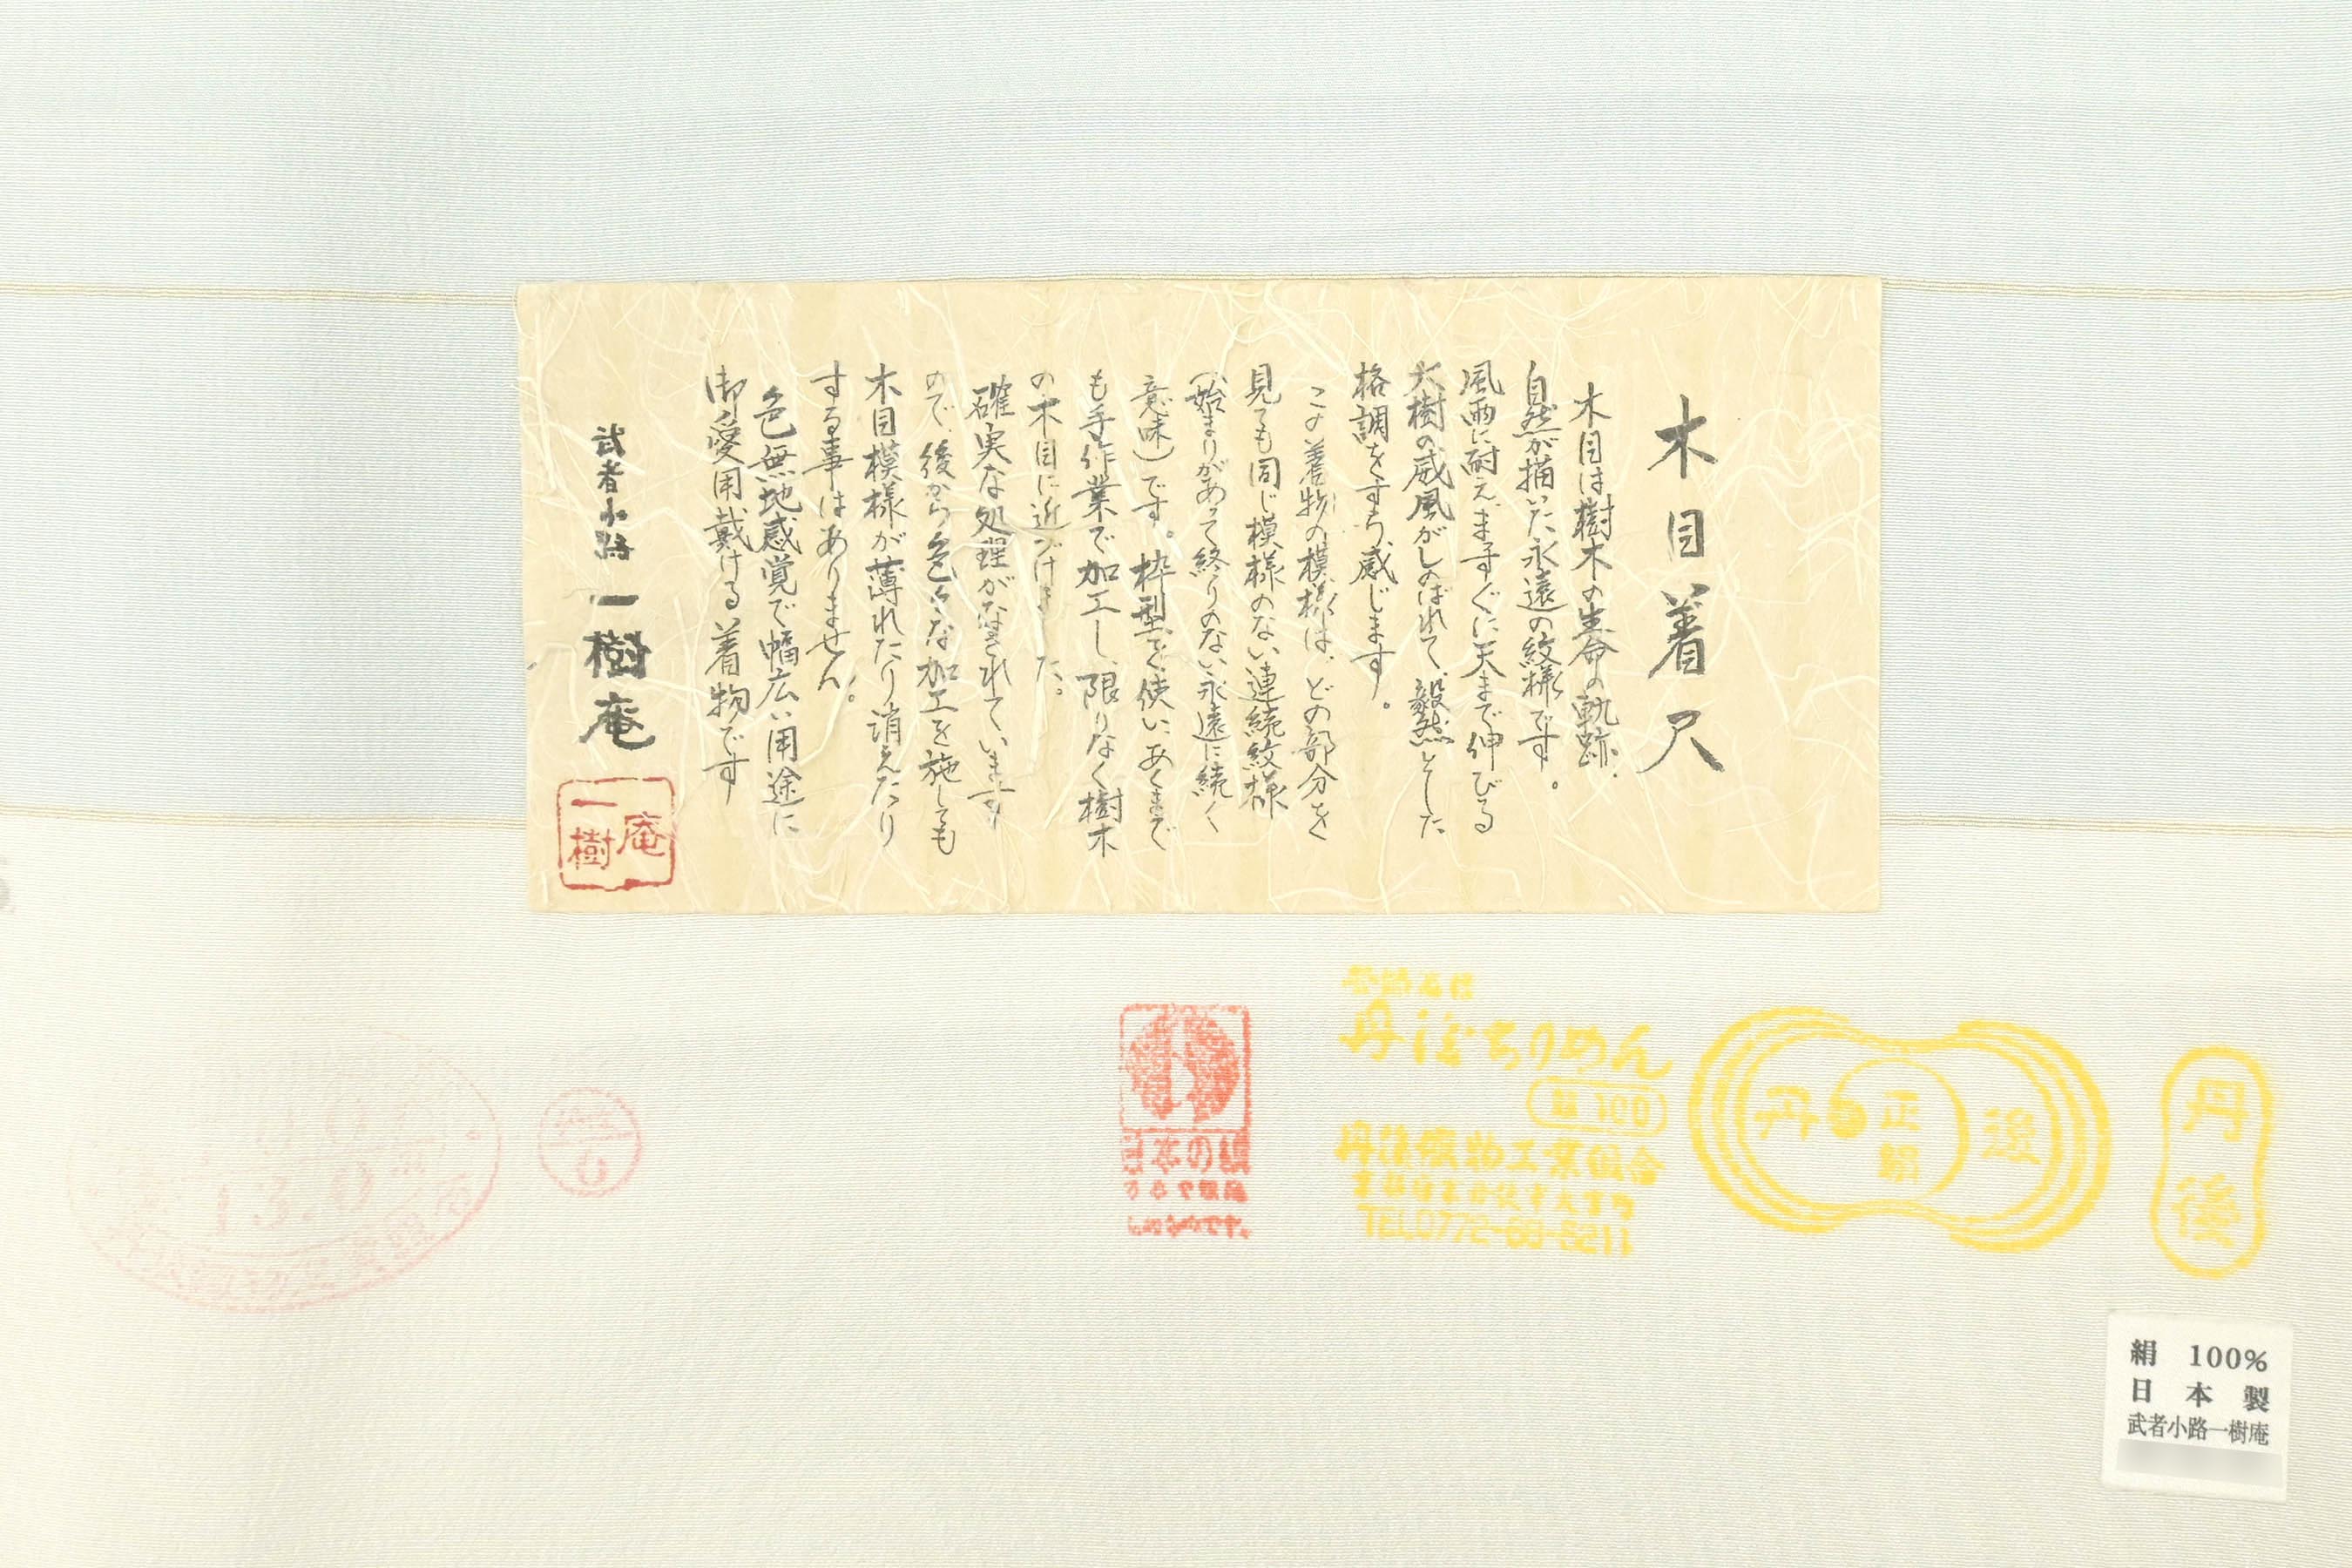 木目着尺
木目は樹木の生命の軌跡.
自然が描いた永遠の紋様です。
風雨に耐えまっすぐに天まで伸びる
大樹の威風がしのばれて、毅然とした
格調をすら感じます。
この着物の模様は、どの部分を
見ても同じ模様のない連続紋様
(始まりがあって終りのない永遠に続く
意味)です。枠型で使いあくまで
も手作業で加工し、限りなく樹木
の木目に近づけました。
確実な処理がなされています
ので、後から色々な加工を施しても
木目模様が薄れたり消えたり
する事はありません。
色無地感覚で幅広い用途に
御愛用戴ける着物です
武者小路 一樹庵
一樹庵
丹後
丹後
正明
丹後ちりめん
絹100
丹後織物工業組合
TEL0772-68-5211
日本の絹
13.0
絹 100%
日本製
武者小路一樹庵